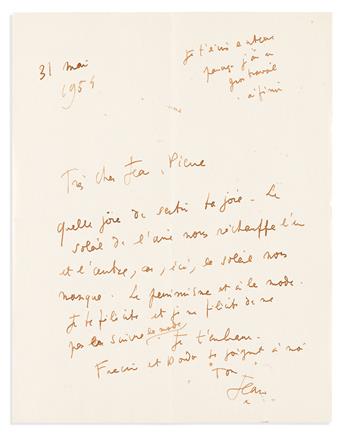 31 mai
1954
Je t'écris entre
parce j'ai un
gros travail
à finir
Très cher Jean Pierre
Quelle joie de sentir ta joie. Le
soleil de l'amie nous réchauffe l'un
et l'autre, car, ici, le soleil nous
manque. Le pessimisme est à la mode.
Je te félicite et je me félicite de ne
pas la suivre la mode.
Je t'embrasse.
Francine et Doudou se joignent à moi
Ton
Jean